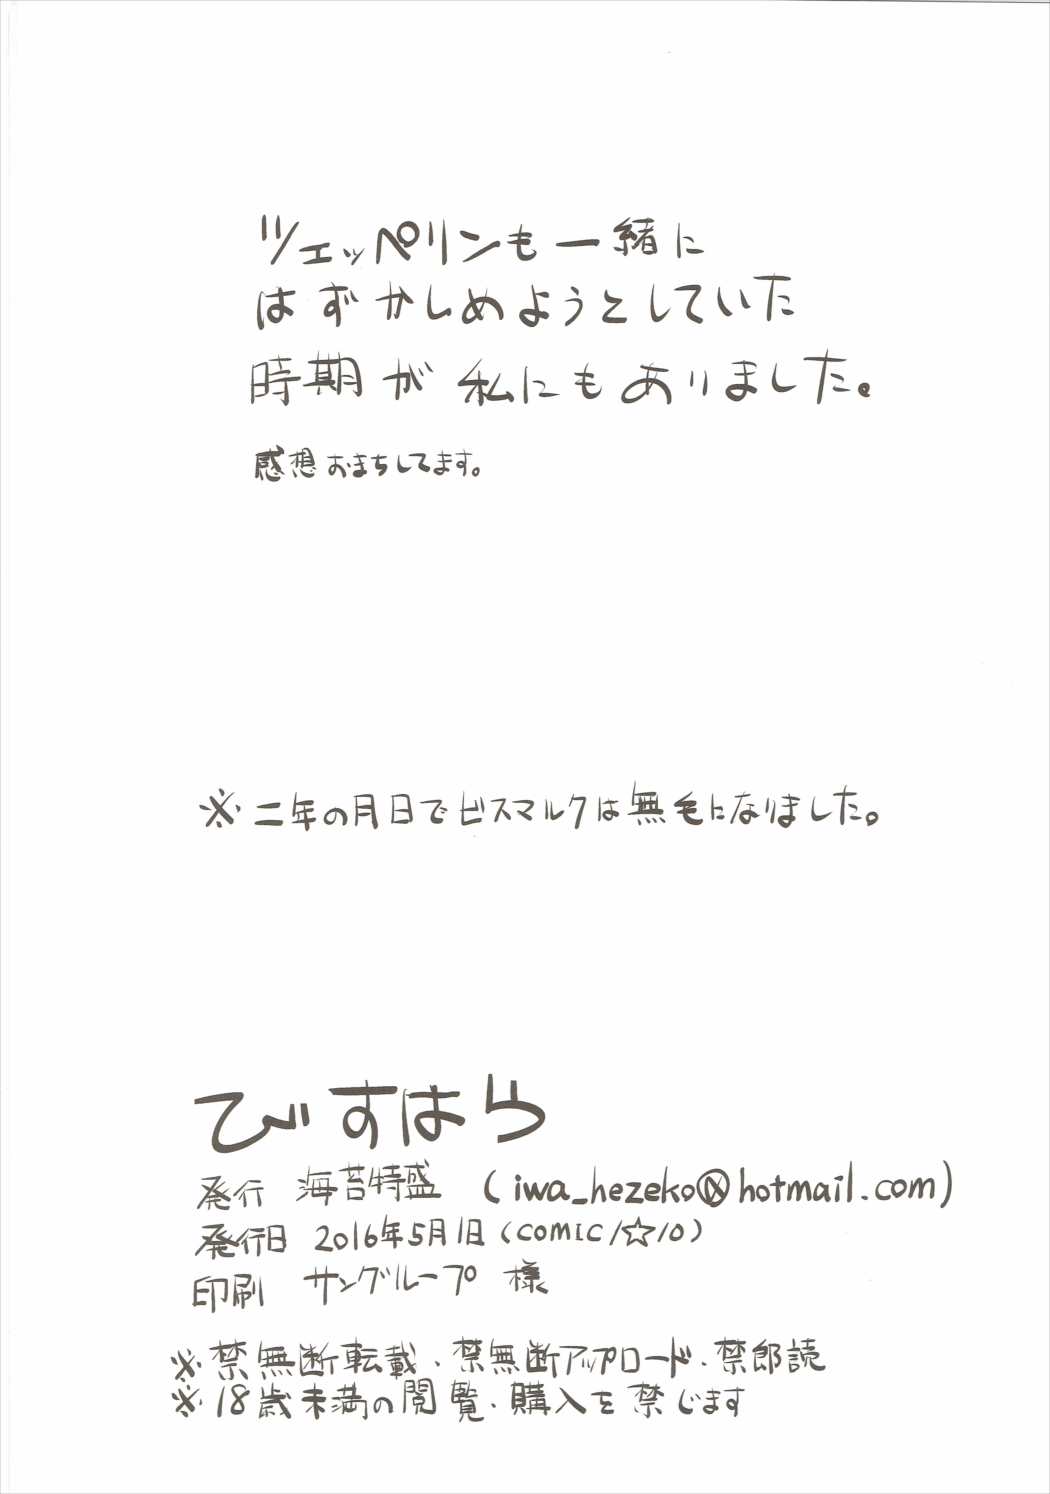 ツェッペリンも一緒に
はずかしめようとしていた
時期が私にもありました。
感想おまちしてます。
※二年の月日でビスマルクは無毛になりました。
びすはら
発行 海苔特盛 (iwa_hezeko@hotmail.com)
発行日 2016年5月1日(COMIC1☆10)
印刷 サングループ 様
※禁無断転載・禁無断アップロード・禁郎読
※18歳未満の閲覧・購入を禁じます